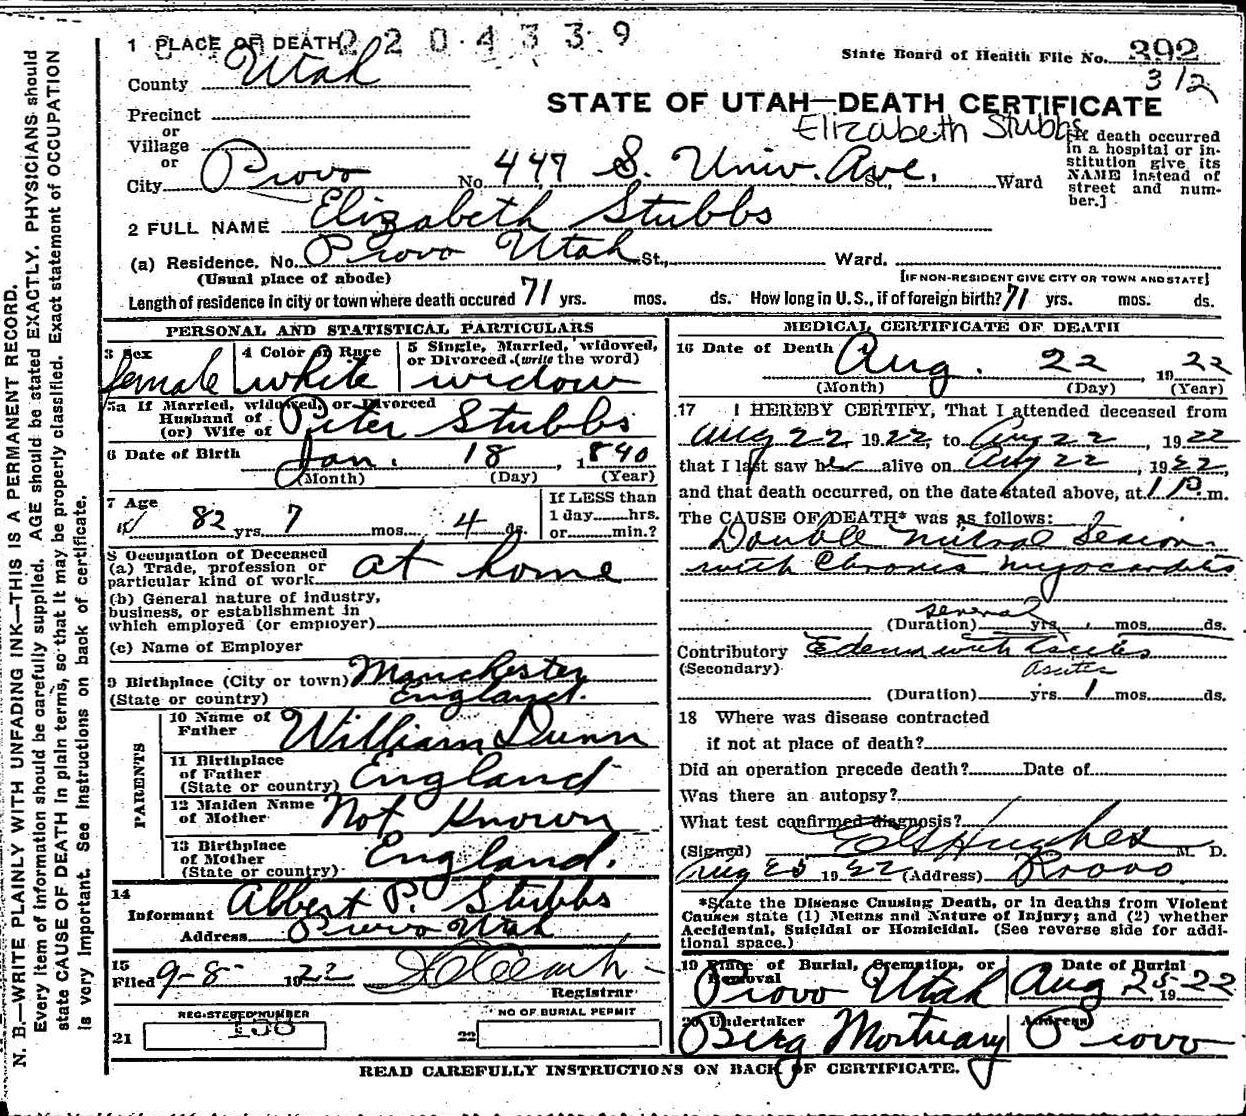 1 PLACE OF DEATH 220·4339
State Board of Health File No. 392
312
County Utah
STATE OF UTAH—DEATH CERTIFICATE
Elizabeth Stubbs
Precinct
or
Village
or
City Provo No. 447 S. Univ. Ave. St., Ward
[If death occurred
in a hospital or in-
stitution give its
NAME instead of
street and num-
ber.]
2 FULL NAME Elizabeth Stubbs
(a) Residence. No. Provo Utah St., Ward.
(Usual place of abode) [IF NON-RESIDENT GIVE CITY OR TOWN AND STATE]
Length of residence in city or town where death occured 71 yrs. mos. ds. How long in U.S., if of foreign birth? 71 yrs. mos. ds.
PERSONAL AND STATISTICAL PARTICULARS
3 Sex
female
4 Color or Race
white
5 Single, Married, widowed,
or Divorced (write the word)
widow
5a If Married, widowed, or Divorced
Husband of
(or) Wife of Peter Stubbs
6 Date of Birth Jan. 18, 1840
(Month) (Day) (Year)
7 Age
82 yrs. 7 mos. 4 ds.
If LESS than
1 day hrs.
or min.?
8 Occupation of Deceased
(a) Trade, profession or
particular kind of work at home
(b) General nature of industry,
business, or establishment in
which employed (or employer)
(c) Name of Employer
9 Birthplace (City or town) Manchester
(State or country) England.
PARENTS
10 Name of
Father William Dunn
11 Birthplace
of Father
(State or country) England
12 Maiden Name
of Mother Not Known
13 Birthplace
of Mother
(State or country) England.
14
Informant Albert P. Stubbs
Address Provo Utah
15
Filed 9-8- 1922
Registrar
REGISTERED NUMBER
21 158
NO OF BURIAL PERMIT
22
MEDICAL CERTIFICATE OF DEATH
16 Date of Death Aug. 22, 1922
(Month) (Day) (Year)
17 I HEREBY CERTIFY, That I attended deceased from
Aug 22, 1922, to Aug 22, 1922
that I last saw her alive on Aug 22, 1922,
and that death occurred, on the date stated above, at 1 P. m.
The CAUSE OF DEATH* was as follows:
Double mitral lesion
with Chronic myocarditis
several
(Duration) yrs. mos. ds.
Contributory Edema with Ascites
(Secondary) Ascites
(Duration) yrs. 1 mos. ds.
18 Where was disease contracted
if not at place of death?
Did an operation precede death? Date of
Was there an autopsy?
What test confirmed diagnosis?
(Signed) Hughes M. D.
Aug 25 1922 (Address) Provo
*State the Disease Causing Death, or in deaths from Violent
Causes state (1) Means and Nature of Injury; and (2) whether
Accidental, Suicidal or Homicidal. (See reverse side for addi-
tional space.)
19 Place of Burial, Cremation, or
Removal
Provo Utah
Date of Burial
Aug 25 1922
20 Undertaker
Berg Mortuary
Address
Provo
READ CAREFULLY INSTRUCTIONS ON BACK OF CERTIFICATE.
N. B.—WRITE PLAINLY WITH UNFADING INK—THIS IS A PERMANENT RECORD.
Every item of information should be carefully supplied. AGE should be stated EXACTLY. PHYSICIANS should
state CAUSE OF DEATH in plain terms, so that it may be properly classified. Exact statement of OCCUPATION
is very important. See instructions on back of certificate.